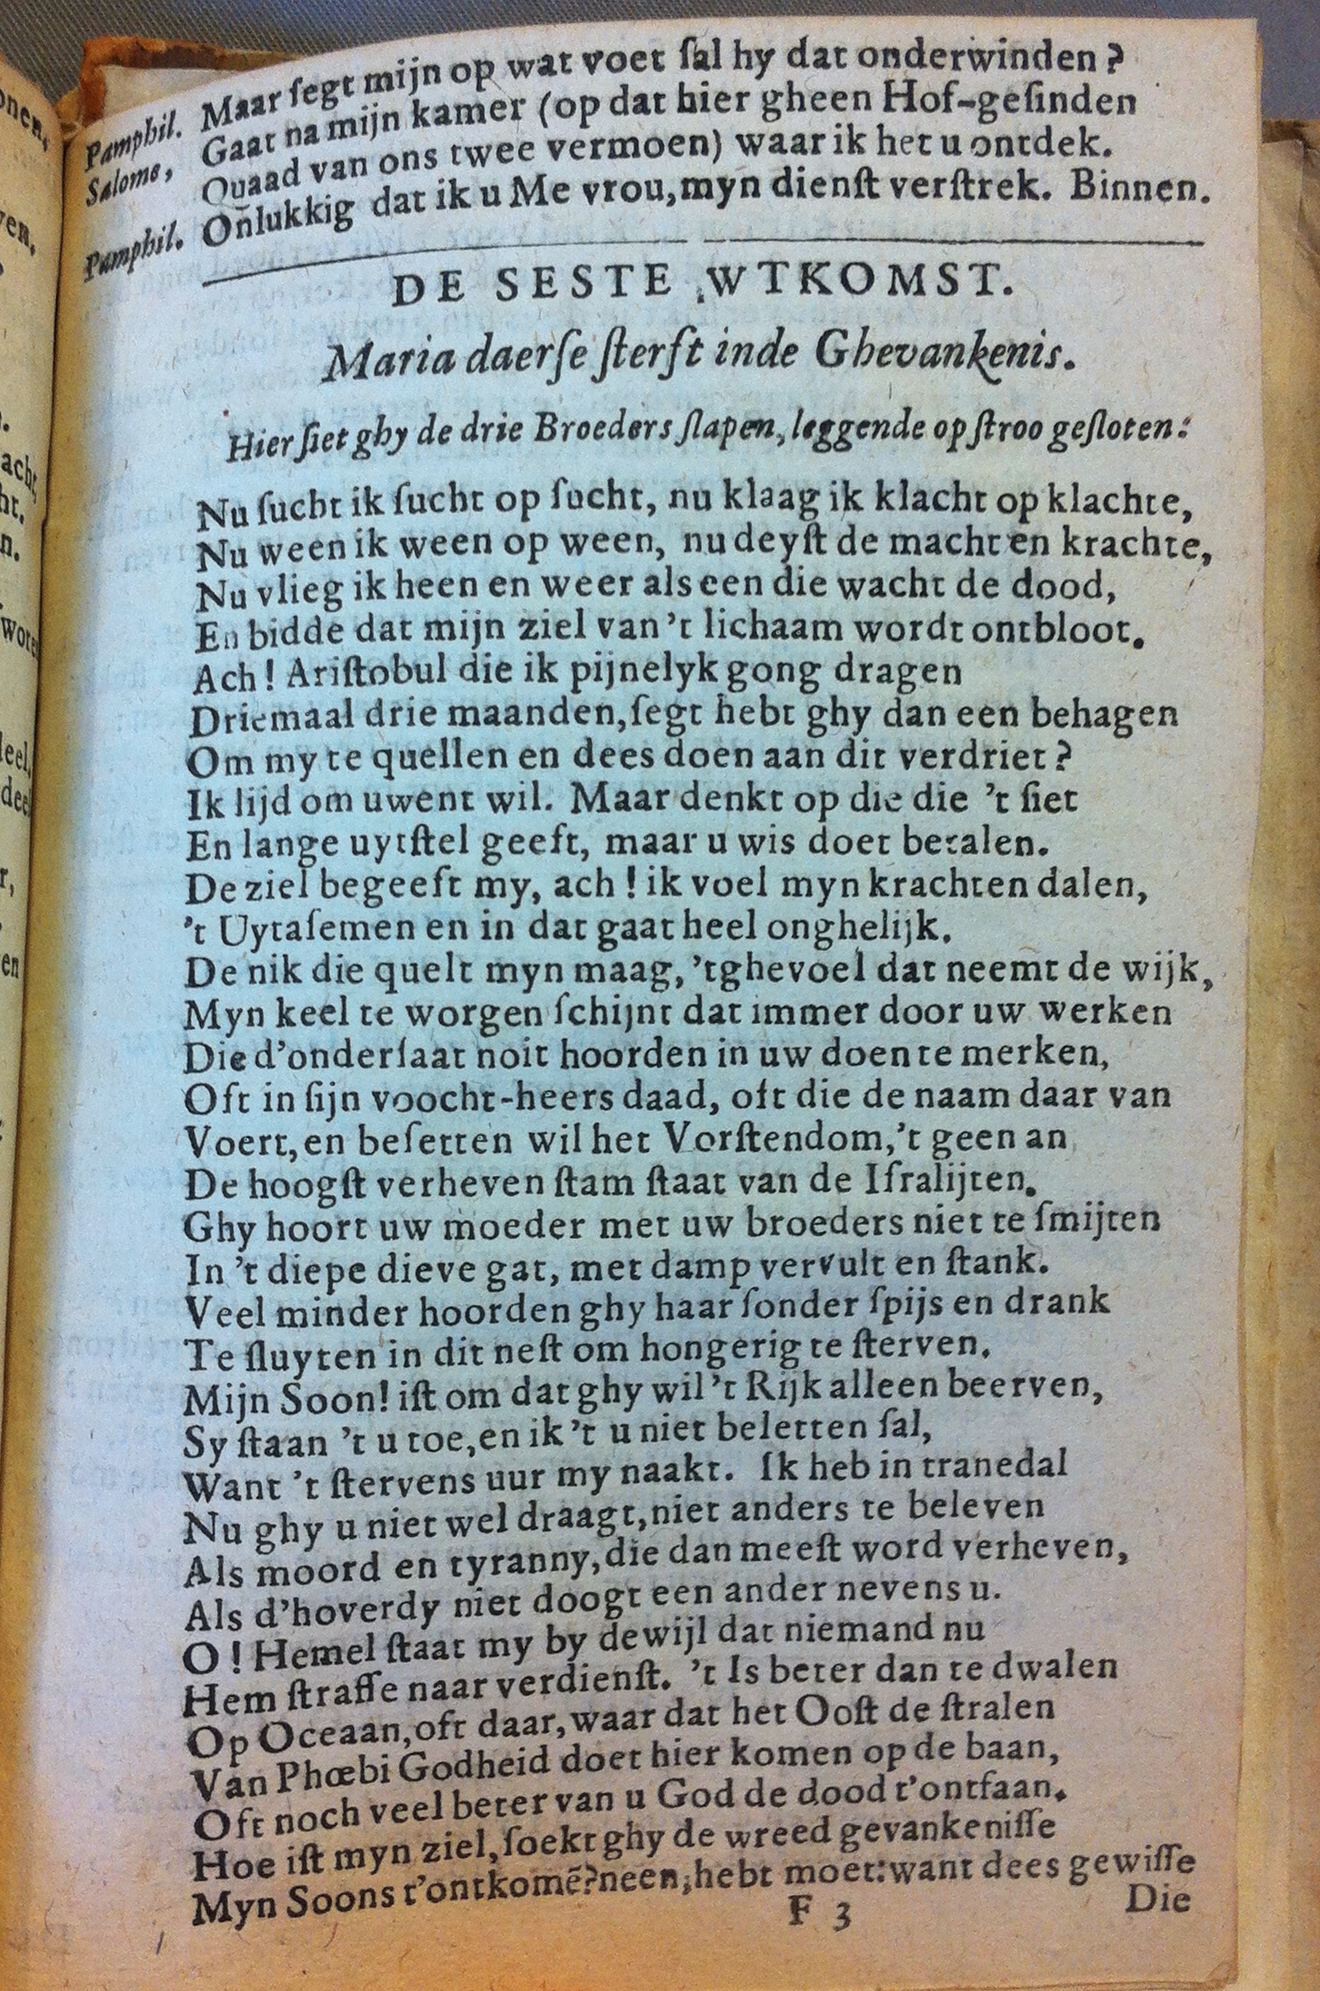 Pamphil. Maar ſegt mijn op wat voet ſal hy dat onderwinden?
Salome, Gaat na mijn kamer (op dat hier gheen Hof-geſinden
Quaad van ons twee vermoen) waar ik het u ontdek.
Pamphil. Onlukkig dat ik u Me vrou, myn dienſt verſtrek. Binnen.
DE SESTE WTKOMST.
Maria daerſe ſterft inde Ghevankenis.
Hier ſiet ghy de drie Broeders ſlapen, leggende op ſtroo geſloten:
Nu ſucht ik ſucht op ſucht, nu klaag ik klacht op klachte,
Nu ween ik ween op ween, nu deyſt de macht en krachte,
Nu vlieg ik heen en weer als een die wacht de dood,
En bidde dat mijn ziel van 't lichaam wordt ontbloot.
Ach! Ariſtobul die ik pijnelyk gong dragen
Driemaal drie maanden, ſegt hebt ghy dan een behagen
Om my te quellen en dees doen aan dit verdriet?
Ik lijd om uwent wil. Maar denkt op die die 't ſiet
En lange uytſtel geeft, maar u wis doet betalen.
De ziel begeeft my, ach! ik voel myn krachten dalen,
't Uytaſemen en in dat gaat heel onghelijk.
De nik die quelt myn maag, 't ghevoel dat neemt de wijk,
Myn keel te worgen ſchijnt dat immer door uw werken
Die d'onderſaat noit hoorden in uw doen te merken,
Oft in ſijn voocht-heers daad, oft die de naam daar van
Voert, en beſetten wil het Vorſtendom, 't geen an
De hoogſt verheven ſtam ſtaat van de Iſralijten.
Ghy hoort uw moeder met uw broeders niet te ſmijten
In 't diepe dieve gat, met damp vervult en ſtank.
Veel minder hoorden ghy haar ſonder ſpijs en drank
Te ſluyten in dit neſt om hongerig te ſterven.
Mijn Soon! iſt om dat ghy wil 't Rijk alleen beerven,
Sy ſtaan 't u toe, en ik 't u niet beletten ſal,
Want 't ſtervens uur my naakt. Ik heb in tranedal
Nu ghy u niet wel draagt, niet anders te beleven
Als moord en tyranny, die dan meeſt word verheven,
Als d'hoverdy niet doogt een ander nevens u.
O! Hemel ſtaat my by dewijl dat niemand nu
Hem ſtraffe naar verdienſt. 't Is beter dan te dwalen
Op Oceaan, oft daar, waar dat het Ooſt de ſtralen
Van Phœbi Godheid doet hier komen op de baan,
Oft noch veel beter van u God de dood t'ontfaan.
Hoe iſt myn ziel, ſoekt ghy de wreed gevankeniſſe
Myn Soons t'ontkomē? neen, hebt moet: want dees gewiſſe
F 3
Die